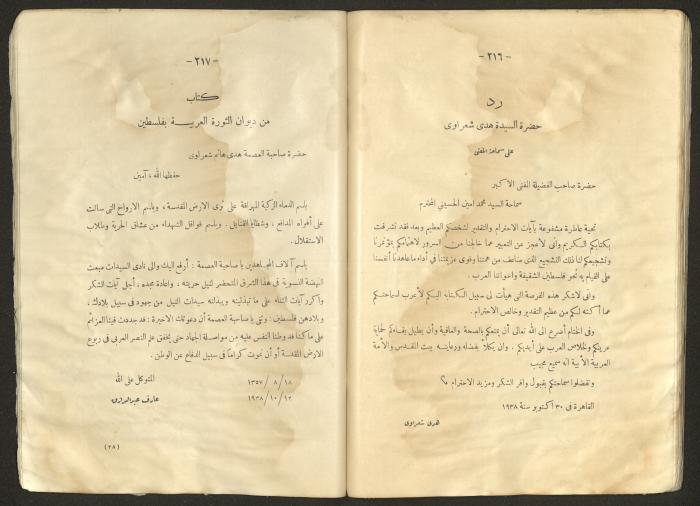 — ٢١٦ —
رد
حضرة السيدة هدى شعراوى
على سماحة المفتى
حضرة صاحب الفضيلة المفتى الأكبر
سماحة السيد محمد امين الحسينى المحترم
تحية عاطرة مشفوعة بآيات الاحترام والتقدير لشخصكم العظيم وبعد، فقد تشرفت
بكتابكم الكريم وانى لأعجز عن التعبير عما خالجنا من السرور لاهتمامكم بمؤتمرنا
وتشجيعكم لنا ذلك التشجيع الذى ضاعف من همتنا وقوى عزيمتنا فى أداء ماعاهدنا أنفسنا
على القيام به نحو فلسطين الشقيقة واخواننا العرب .
وانى لاشكر هذه الفرصة التى هيأت لى سبيل الكتابة اليكم لأعرب لسماحتكم
عما أكنه لكم من عظيم التقدير وخالص الاحترام .
وفى الختام أضرع الى الله تعالى أن يمتعكم بالصحة والعافية وأن يطيل بقاءكم لحماية
عرينكم وخلاص العرب على أيديكم . وان يكلأ بفضله ورعايته بيت المقدس والأمة
العربية الأبية انه سميع مجيب
وتفضلوا سماحتكم بقبول وافر الشكر ومزيد الاحترام
القاهرة فى ٣٠ أكتوبر سنة ١٩٣٨
هدى شعراوى
— ٢١٧ —
كتاب
من ديوان الثورة العربية بفلسطين
حضرة صاحبة العصمة هدى هانم شعراوى
حفظها الله ، آمين
باسم الدماء الزكية المهراقة على ثرى الارض المقدسة ، وباسم الارواح التى سالت
على أفواه المدافع ، وشظايا القنابل . وباسم قوافل الشهداء من عشاق الحرية وطلاب
الاستقلال .
باسم آلاف المجاهدين يا صاحبة العصمة : أرفع اليك والى نادى السيدات مبعث
النهضة النسوية فى هذا الشرق المتحفز لنيل حريته ، واعادة مجده ، أجلى آيات الشكر
واكرر آيات الثناء على ما تبذلينه ويبذلنه سيدات النيل من جهود فى سبيل بلادك ،
وبلادهن فلسطين : وثقى يا صاحبة العصمة أن دعوتك الاخيرة : قد جددت فينا العزائم
على ماكنا قد وطنا النفس عليه من مواصلة الجهاد حتى يخفق علم النصر العربى فى ربوع
الارض المقدسة أو أن نموت كراماً فى سبيل الدفاع عن الوطن .
١٨ / ٨ / ١٣٥٧
المتوكل على الله
١٢ / ١٠ / ١٩٣٨
عارف عبد الرازق
(٢٨)